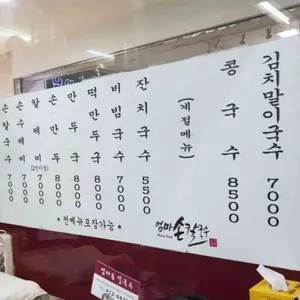 손칼국수 7000
손수제비 7000
칼제비 (2인이상) 7000
손만두
만두국
떡만두국
비빔국수 7000
잔치국수 5500
(계절메뉴)
콩국수 8500
김치말이국수 7000
* 전메뉴포장가능 *
엄마손칼국수